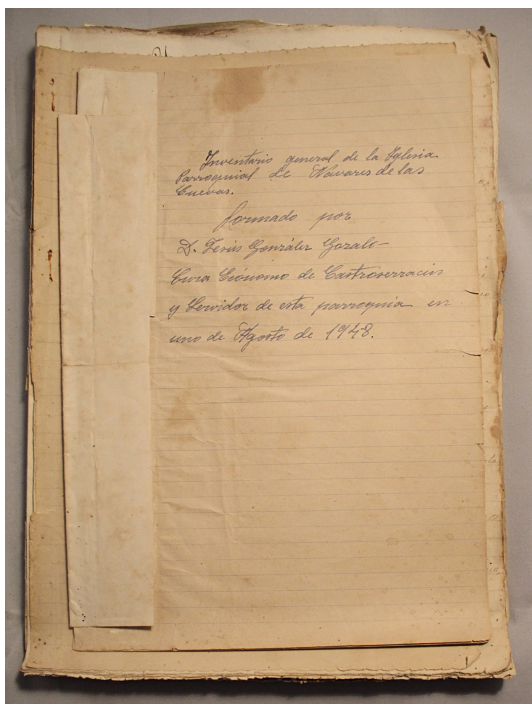 Inventario general de la Yglesia
Parroquial de Návares de las
Cuevas.
formado por
D. Jesús González Gozalo-
Cura Ecónomo de Castroserracín
y Servidor de esta parroquia en
uno de Agosto de 1948.